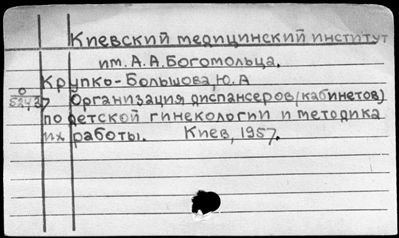 Киевский медицинский институт
им. А.А.Богомольца.
Крупко-Большова, Ю.А
Организация диспансеров/кабинетов)
по детской гинекологии и методика
их работы. Киев, 1957.